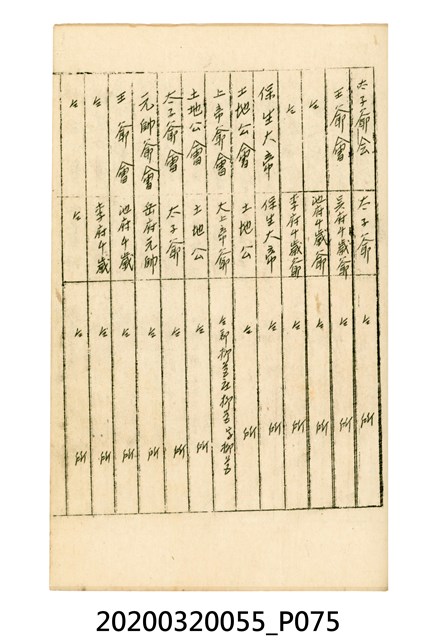 太子爺会 太子爺 仝 所
王爺會 吳府千歲爺 仝 所
仝 池府千歲爺 仝 所
仝 李府千歲爺 仝 所
保生大帝 保生大帝 仝 所
土地公會 土地公 仝 所
上帝爺會 大上帝爺 仝郡柳营庄柳营字柳营
土地公會 土地公 仝 所
太子爺會 太子爺 仝 所
元帥爺會 岳府元帥 仝 所
王爺會 池府千歲 仝 所
仝 李府千歲 仝 所
仝 仝 仝 所
20200320055_P075